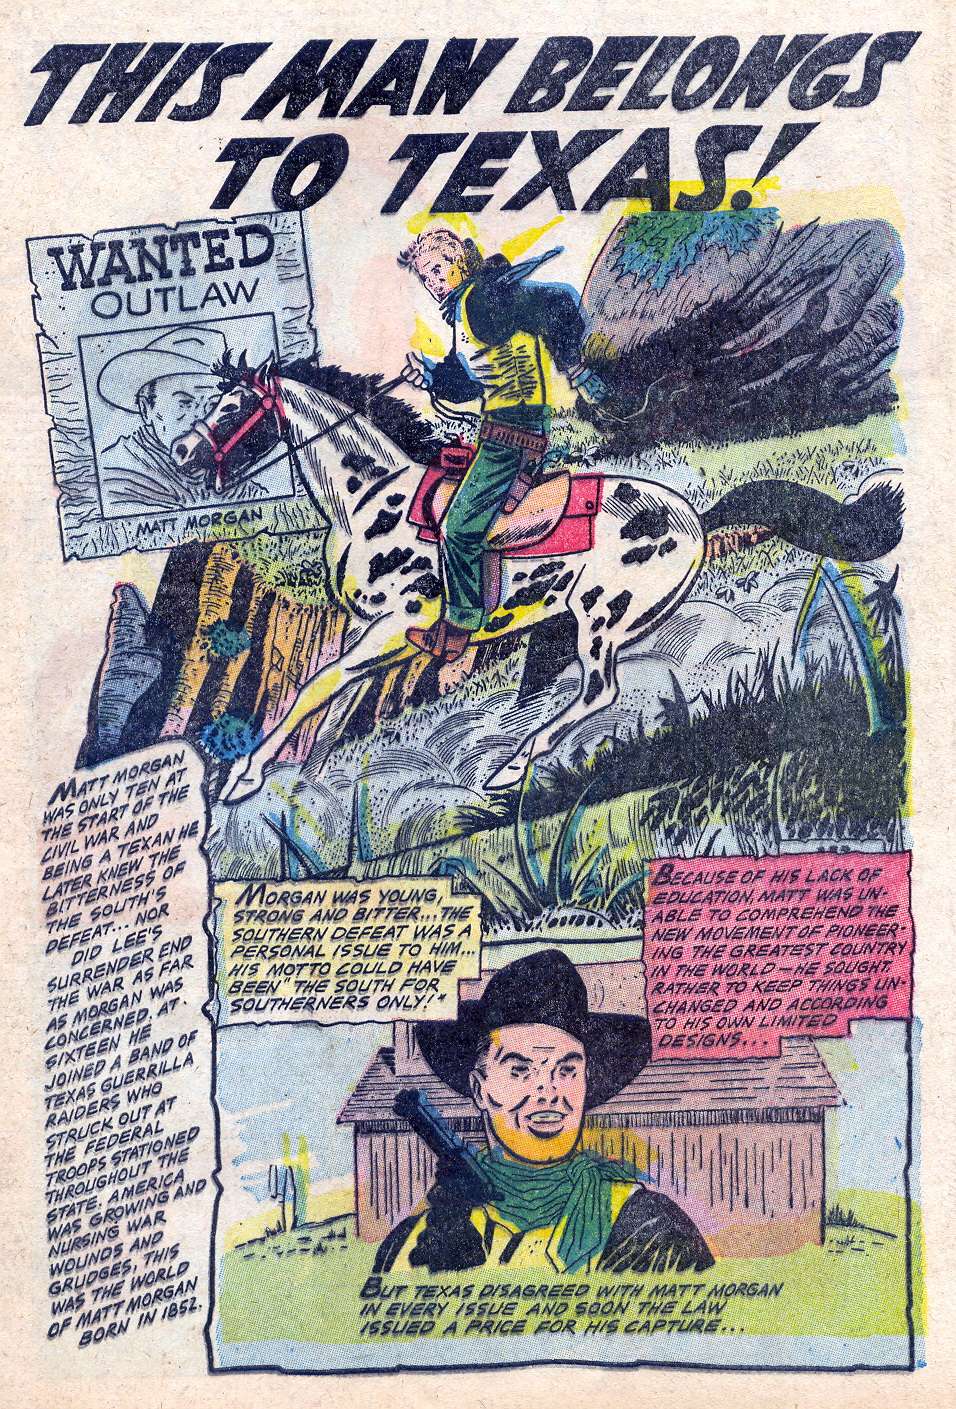 THIS MAN BELONGS
TO TEXAS!
WANTED
OUTLAW
MATT MORGAN
MATT MORGAN
WAS ONLY TEN AT
THE START OF THE
CIVIL WAR AND
BEING A TEXAN HE
LATER KNEW THE
BITTERNESS OF
THE SOUTH'S
DEFEAT... NOR
DID LEE'S
SURRENDER END
THE WAR AS FAR
AS MORGAN WAS
CONCERNED. AT
SIXTEEN HE
JOINED A BAND OF
TEXAS GUERRILLA
RAIDERS WHO
STRUCK OUT AT
THE FEDERAL
TROOPS STATIONED
THROUGHOUT THE
STATE. AMERICA
WAS GROWING AND
NURSING WAR
WOUNDS AND
GRUDGES, THIS
WAS THE WORLD
OF MATT MORGAN
BORN IN 1852.
MORGAN WAS YOUNG,
STRONG AND BITTER... THE
SOUTHERN DEFEAT WAS A
PERSONAL ISSUE TO HIM...
HIS MOTTO COULD HAVE
BEEN "THE SOUTH FOR
SOUTHERNERS ONLY!"
BECAUSE OF HIS LACK OF
EDUCATION, MATT WAS UN-
ABLE TO COMPREHEND THE
NEW MOVEMENT OF PIONEER-
ING THE GREATEST COUNTRY
IN THE WORLD — HE SOUGHT,
RATHER TO KEEP THINGS UN-
CHANGED AND ACCORDING
TO HIS OWN LIMITED
DESIGNS...
BUT TEXAS DISAGREED WITH MATT MORGAN
IN EVERY ISSUE AND SOON THE LAW
ISSUED A PRICE FOR HIS CAPTURE...